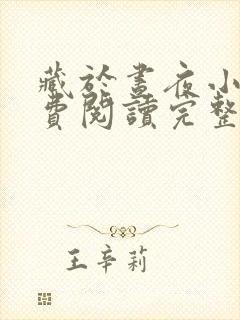 藏於晝夜小
費閱讀完整
王辛莉